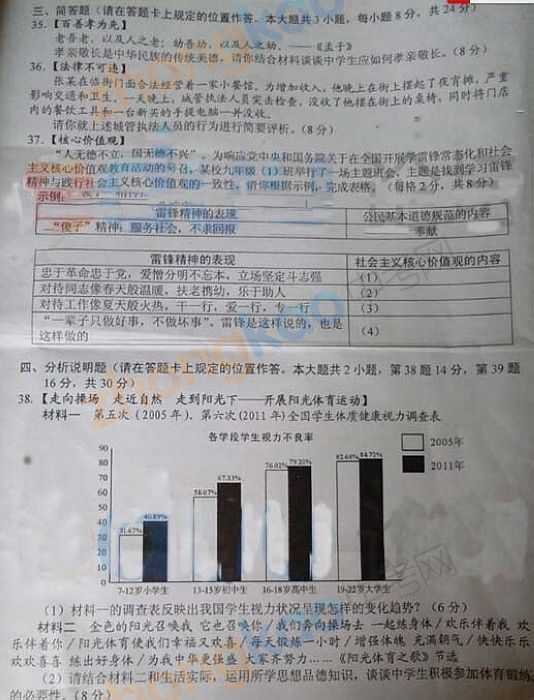 三、简答题（请在答题卡上规定的位置作答。本大题共3小题，每小题8分，共24分）
35.【百善孝为先】
老吾老，以及人之老；幼吾幼，以及人之幼。——《孟子》
孝亲敬长是中华民族的传统美德。请你结合材料谈谈中学生应如何孝亲敬长。（8分）
36.【法律不可违】
张某在临街门面合法经营着一家小餐馆。为增加收入，他晚上在街上摆起了夜宵摊，严重
影响交通和卫生。一天晚上，城管执法人员突击检查，没收了他摆在街上的桌椅，同时将门店
内的餐饮工具和一台新买的手提电脑一并没收。
请你就上述城管执法人员的行为进行简要评析。（8分）
37.【核心价值观】
“人无德不立，国无德不兴”。为响应党中央和国务院关于在全国开展学雷锋常态化和社会
主义核心价值观教育活动的号召，某校九年级（1）班举行了一场主题班会，主题是找到学习雷锋
精神与践行社会主义核心价值观的一致性。请你根据示例，完成表格。（每格2分，共8分）
示例：
雷锋精神的表现 公民基本道德规范的内容
“傻子”精神；服务社会，不求回报 奉献
雷锋精神的表现 社会主义核心价值观的内容
忠于革命忠于党，爱憎分明不忘本，立场坚定斗志强 （1）
对待同志像春天般温暖，扶老携幼，乐于助人 （2）
对待工作像夏天般火热，干一行，爱一行，专一行 （3）
“一辈子只做好事，不做坏事”。雷锋是这样说的，也是 （4）
这样做的
四、分析说明题（请在答题卡上规定的位置作答。本大题共2小题，第38题14分，第39题
16分，共30分）
38.【走向操场 走近自然 走到阳光下——开展阳光体育运动】
材料一 第五次（2005年）、第六次（2011年）全国学生体质健康视力调查表
各学段学生视力不良率
2005年
2011年
90
80
70
60
50
40
30
20
10
0
31.67% 40.89% 58.07% 67.33% 76.02% 79.20% 82.68% 84.72%
7-12岁小学生 13-15岁初中生 16-18岁高中生 19-22岁大学生
（1）材料一的调查表反映出我国学生视力状况呈现怎样的变化趋势？（6分）
材料二 金色的阳光召唤我 它也召唤你/我们奔向操场去 一起练身体/欢乐伴着我 欢
乐伴着你/阳光体育使我们幸福又欢喜/每天锻炼一小时/增强体魄 充满朝气/快快乐乐
欢欢喜喜 练出好身体/为我中华更强盛 大家齐努力……《阳光体育之歌》节选
（2）请结合材料二和生活实际，运用所学思想品德知识，谈谈中学生积极参加体育锻炼
的必要性。（8分）